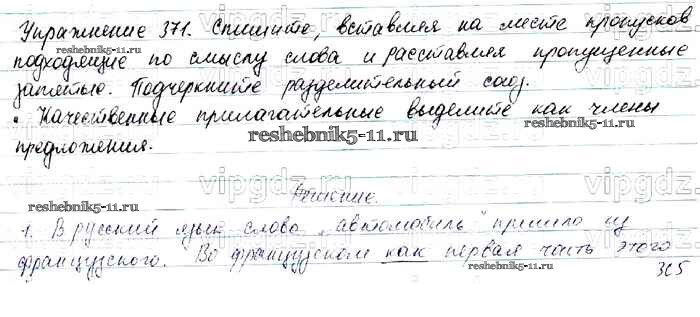 Упражнение 371. Спишите, вставляя на месте пропусков
подходящие по смыслу слова и расставляя пропущенные
запятые. Подчеркните разделительный союз.
• Качественные прилагательные выделите как члены
предложения.
Решение.
1. В русский язык слово „автомобиль" пришло из
французского. Во французском как первая часть этого
365
reshebnik5-11.ru
reshebnik5-11.ru
reshebnik5-11.ru
reshebnik5-11.ru
vipgdz.ru
vipgdz.ru
vipgdz.ru